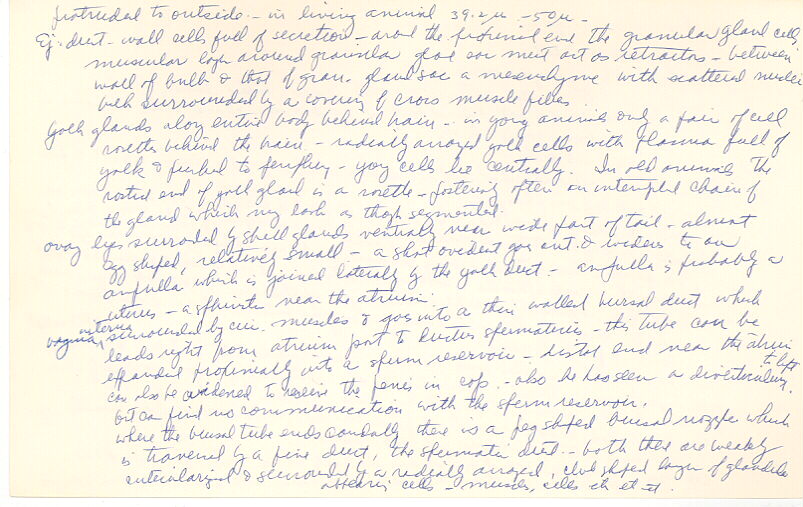 protruded to outside - in living animal 39.2µ - 50µ -
Ej. duct - wall cells full of secretion - around the proximal end the granular gland cells,
muscular layer around granular gland sac must act as retractors - between
wall of bulb & that of gran. gland sac a mesenchyme with scattered nuclei
bulb surrounded by a covering of cross muscle fibres.
Yolk glands along entire body behind brain - in young animals only a pair of cell
rosettes behind the brain - radially arrayed yolk cells with plasma full of
yolk & pushed to periphery - young cells lie centrally. In old animals the
rostral end of yolk gland is a rosette - posteriorly often an interrupted chain of
the gland which may look as though segmented.
ovary lies surrounded by shell glands ventrally near wide part of tail - almost
egg shaped, relatively small - a short oviduct goes out & widens to an
ampulla which is joined laterally by the yolk duct - ampulla is probably a
uterus - a sphincter near the atrium.
vagina interna surrounded by circ. muscles & goes into a thin walled bursal duct which
leads right from atrium part to ductus spermaticus - this tube can be
expanded proximally into a sperm reservoir - distal end near the atrium
can also be widened to receive the penis in cop. - also he has seen a diverticulum to left
but can find no communication with the sperm reservoir.
where the bursal tube ends caudally there is a peg shaped bursal nozzle which
is traversed by a fine duct, the spermatic duct - both these are weakly
cuticularized & surrounded by a radially arrayed, club shaped layer of glandular
appearing cells - muscles, cells etc et